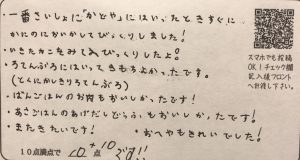 一番さいしょに「かどや」にはいったときすぐに
かにのにおいがしてびっくりしました!
いきたカニをみてびっくりしたよ。
ろてんぶろにはいってきもちよかったです。
(とくにかしきりろてんぶろ)
ばんごはんのお肉もおいしかったです!
あさごはんのあげだしどうふもおいしかったです。
またきたいです! おへやもきれいでした!
10点満点で 10+10 点 です!!
スマホでも投稿
OK!チェック欄
記入後フロント
へお渡し下さい。